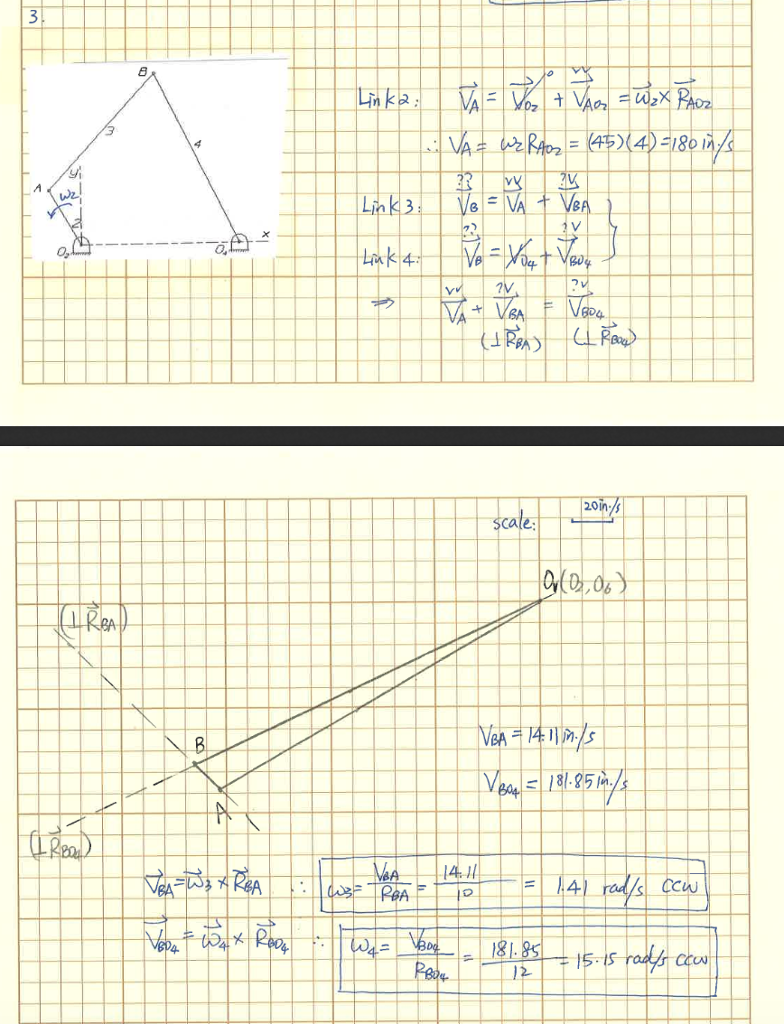 3.
B
3
4
y
A
ω2
2
O2
O4
x
Link 2: V⃗A = V⃗O2 (→0) + V⃗AO2 (√√) = ω⃗2 × R⃗AO2
∴ VA = ω2 RAO2 = (45)(4) = 180 in/s
Link 3: V⃗B (??) = V⃗A (√√) + V⃗BA (?√)
Link 4: V⃗B (??) = V⃗O4 + V⃗BO4 (?√)
⇒ V⃗A (√√) + V⃗BA (?√) = V⃗BO4 (?√)
(⊥R⃗BA) (⊥R⃗BO4)
scale: 20 in./s
Ov (O2, O6)
(⊥R⃗BA)
B
A
VBA = 14.11 in./s
VBO4 = 181.85 in./s
(⊥R⃗BO4)
V⃗BA = ω⃗3 × R⃗BA ∴ ω3 = VBA/RBA = 14.11/10 = 1.41 rad/s CCW
V⃗BO4 = ω⃗4 × R⃗BO4 ∴ ω4 = VBO4/RBO4 = 181.85/12 = 15.15 rad/s CCW